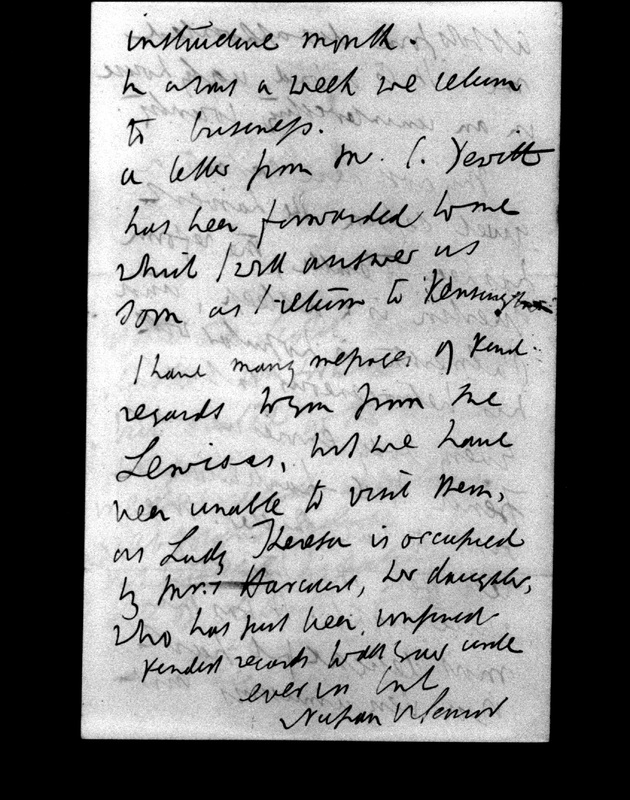 instructive month.
In about a week we return
to business.
a letter from Mr. C. Jewitt
has been forwarded to me
which I will answer as
soon as I return to Kensington
I have many messages of kind
regards to you from the
Lewises, but we have
been unable to visit them,
as Lady Theresa is occupied
by Mrs. Harcourt, her daughter,
who has just been confined
Kindest regards to all your circle
ever in